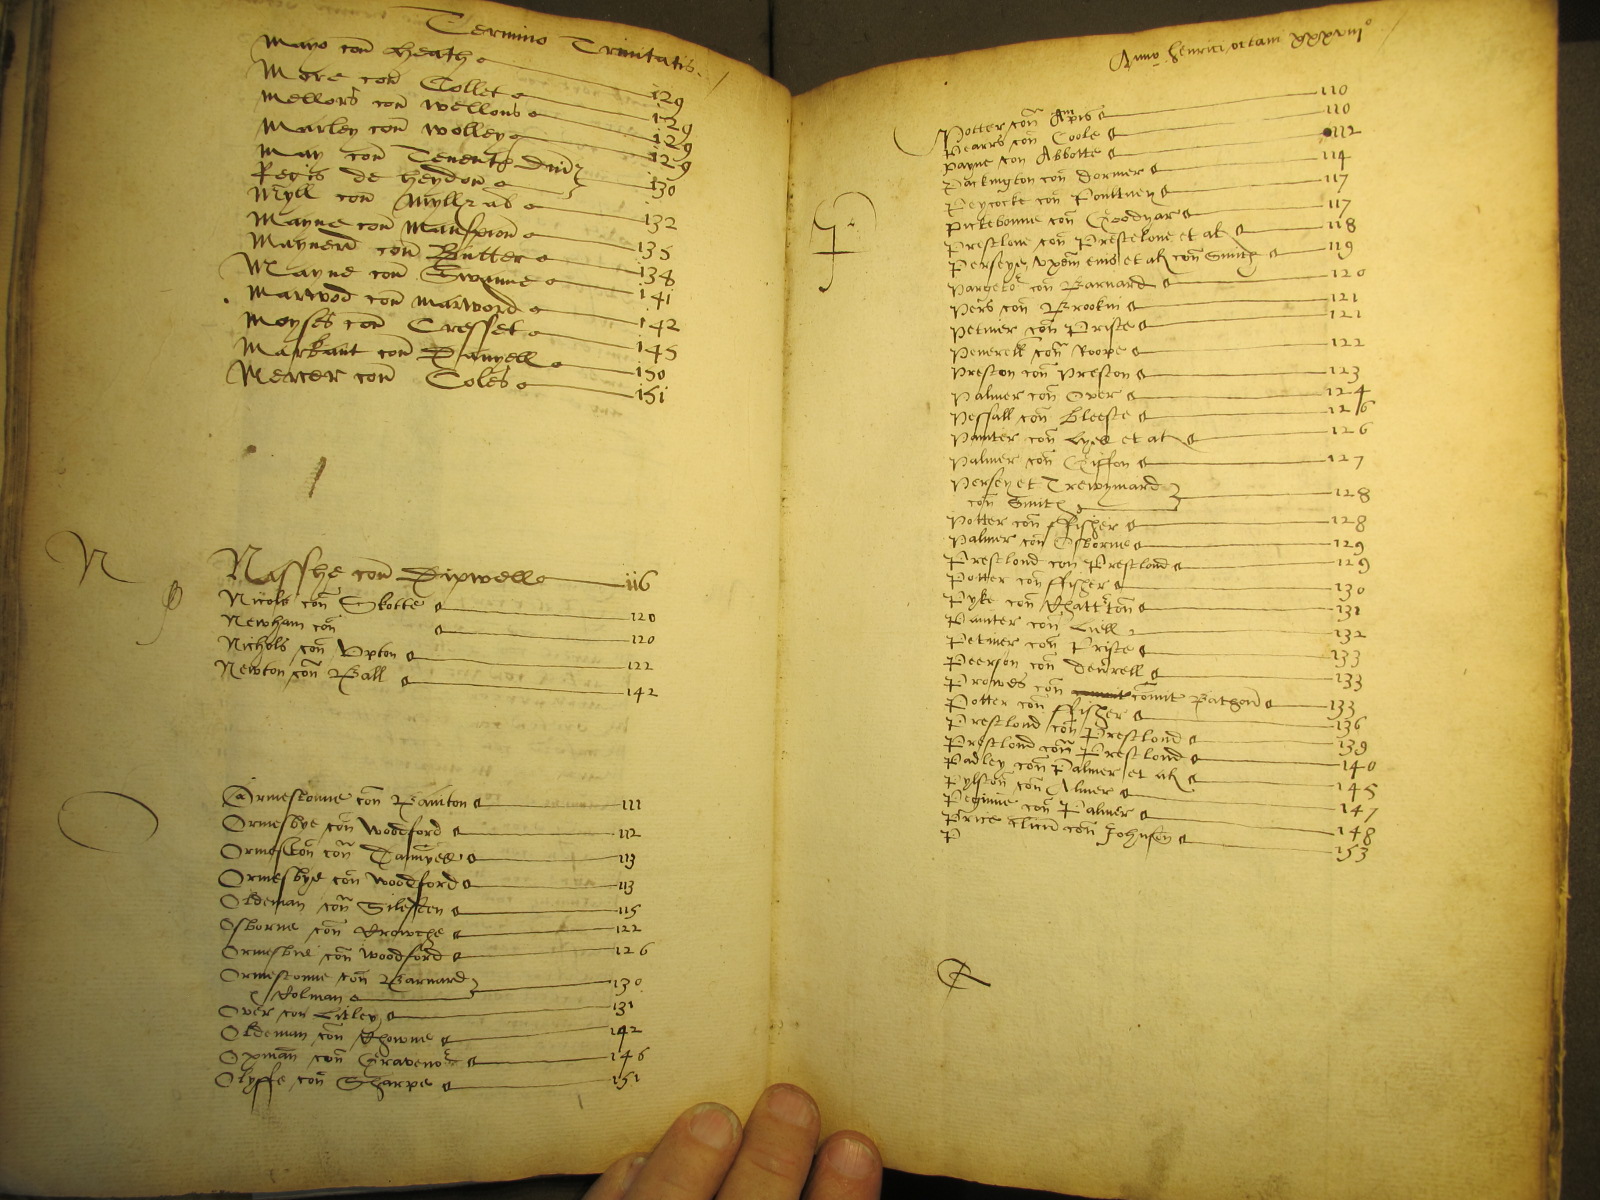 Termino Trinitatis
Mayo con Heath 129
More con Collet 129
Mellors con Wellons 129
Marley con Wolley 129
May con Tenent
Regis de Heydon 130
Myll con Myll 132
Mayne con Manxion 135
Maynerd con Butter 138
Mayne con Swanne 141
Marwod con Marword 142
Moyses con Cresset 145
Markant con Danyell 150
Mercer con Coles 151
N
Nasshe con Dipwell 116
Nicols con Skotte 120
Newham con 120
Nichols con Upton 122
Newton con Ball 142
O
Ormestonne con Banton 111
Ormesbye con Woodford 112
Ormeston con Dannyes 113
Ormesbye con Woodford 113
Oldeman con Silesten 115
Osborne con Krowche 122
Ormesbye con Woodford 126
Ormestonne con Barnard
Rolman 130
Over con Litley 131
Oldeman con Rhowme 142
Oxman con Gravenor 146
Olyffe con Sharpe 151
Anno Henrici octavi xxxviiiº
P
Potter con Apris 110
Pearrs con Coole 110
Payne con Abbotte 112
Packington con Dormer 114
Peycocke con Poulteney 117
Pickebonne con Goodyar 117
Prestlove con Prestelove et al 118
Persey uxem eius et al con Smith 119
Pargeter con Barnard 120
Pers con Brookin 121
Petmer con Priste 121
Peverell con Roope 122
Preston con Preston 123
Palmer con Over 124
Pessall con Bleeste 126
Panter con Lyes et al 126
Palmer con Giffon 127
Persey et Trewymard
con Smith 128
Potter con ffisher 128
Palmer con Osborne 129
Prestlond con Prestlond 129
Potter con ffisher 130
Pyke con Khatterton 131
Panter con Luell 132
Petmer con Priste 133
Peerson con Deverell 133
Prowes con comit Bathon 133
Potter con ffisher 136
Prestlond con Prestlond 139
Prestlond con Prestlond 140
Padley con Palmer et al 145
Pylston con Almer 147
Peginne con Palmer 148
Price clicum con Johnson 153
P
Q